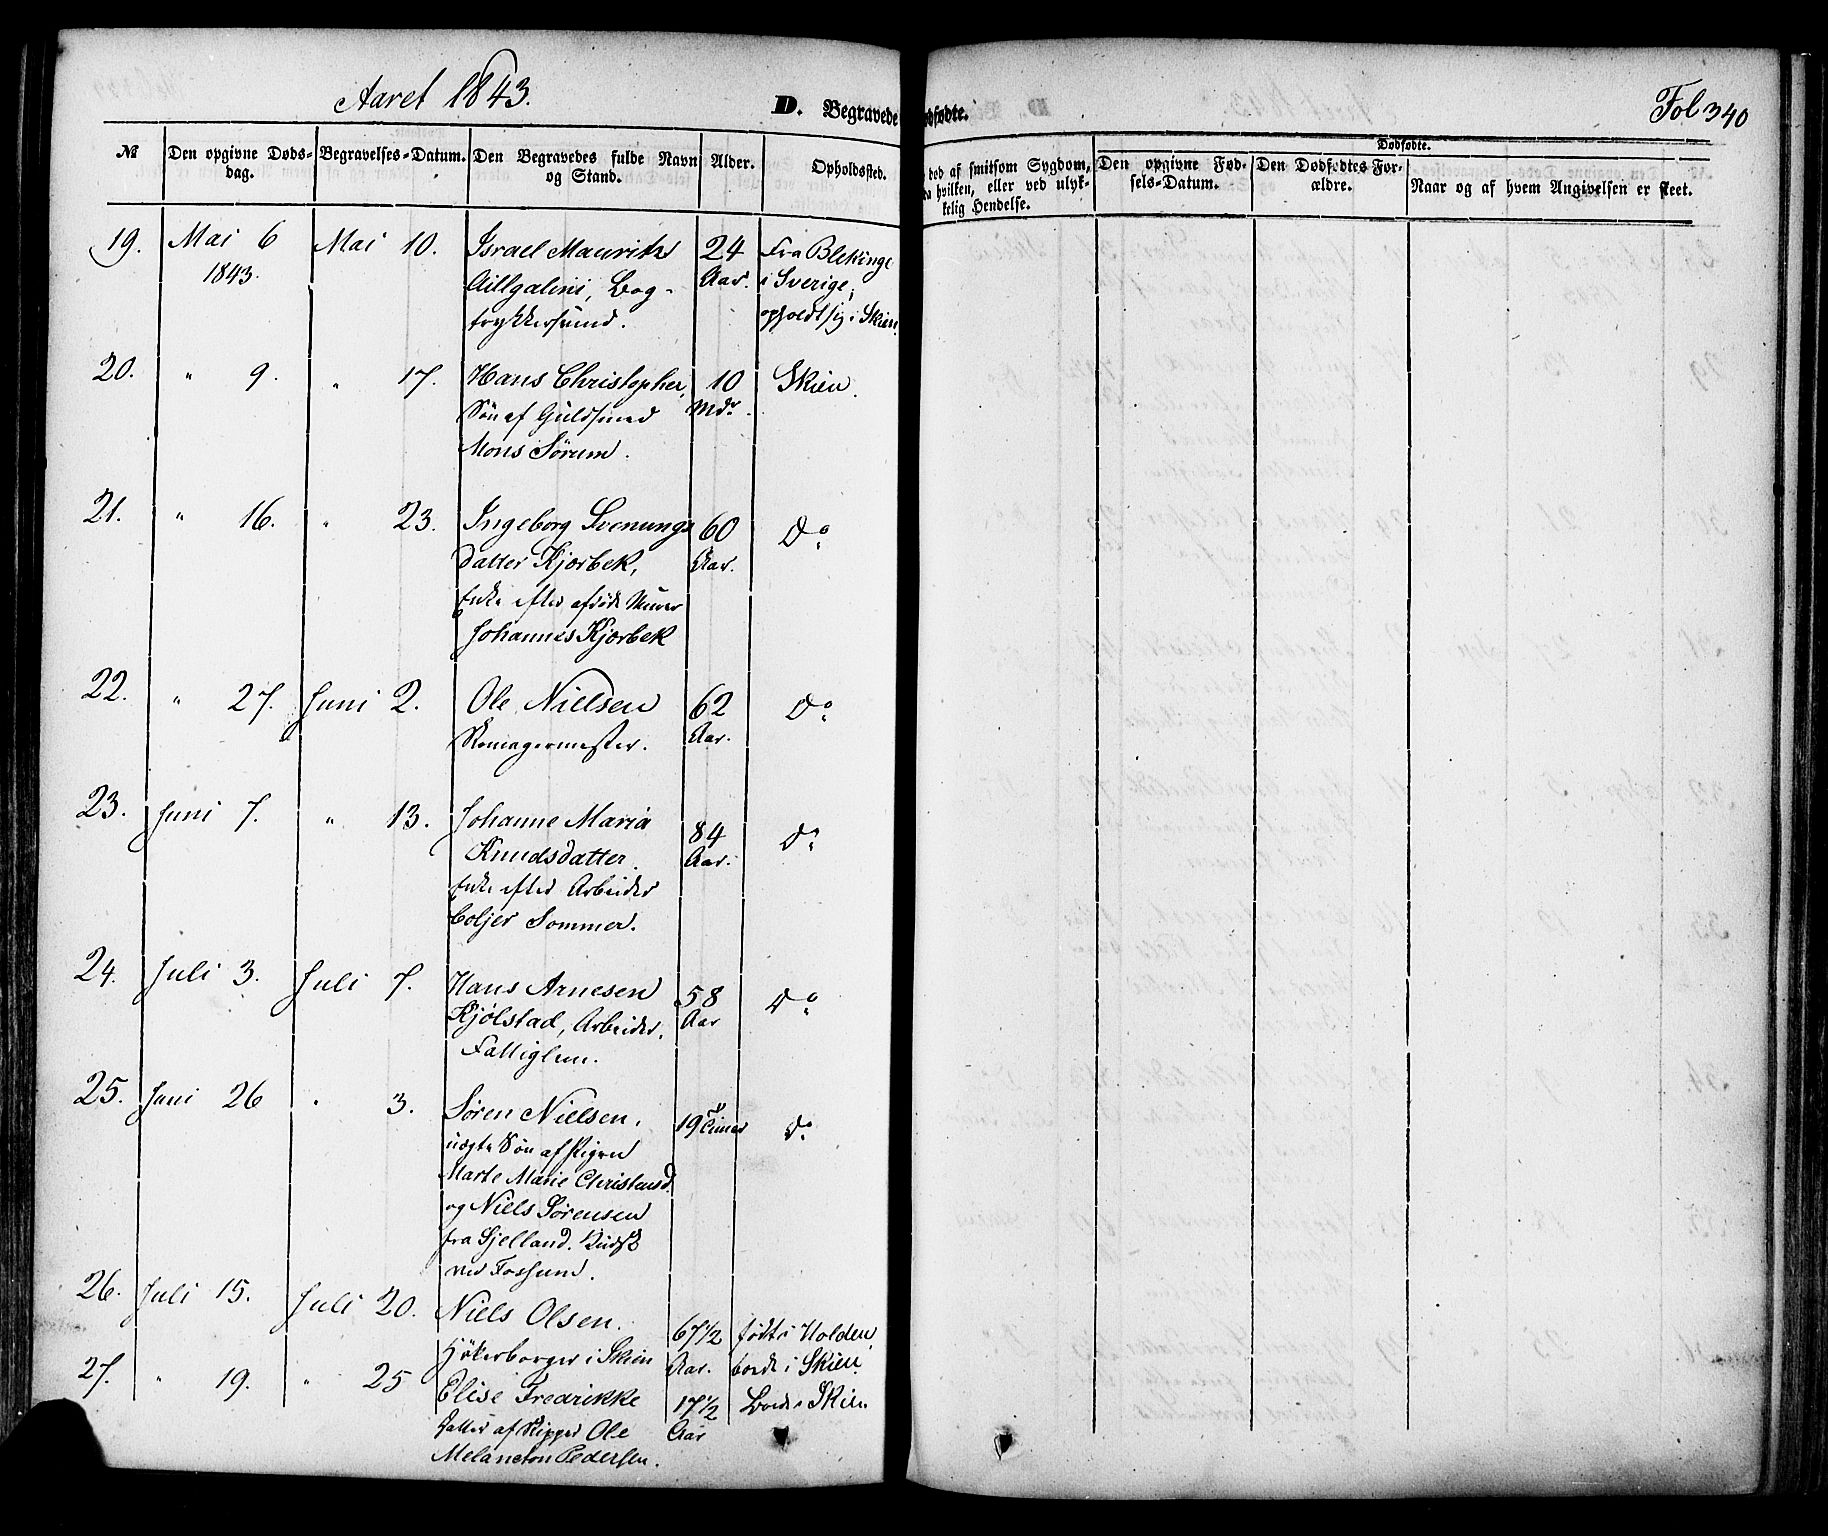 Aaret 1843.
D. Begravede
dfødte.
Fol 340
№
Den opgivne Døds-
dag.
Begravelses-Datum.
Den Begravedes fulde Navn
og Stand.
Alder.
Opholdssted.
død af smitsom Sygdom,
hvilken, eller ved ulyk-
kelig Hendelse.
Dødfødte.
Den opgivne Fød-
sels-Datum.
Den Dødfødtes For-
ældre.
Naar og af hvem Angivelsen er skeet.
19. Mai 6 Mai 10. Israel Mauritz 24 Fra Blekinge
1843. Bog- Aar. i Sverige,
trykkersvend. opholdt sig i Skien.
20. " 9. " 17. Hans Christopher, 10 Skien.
Søn af Guldsmed Mdr.
Mons Sørum.
21. " 16. " 23. Ingeborg Svenungs 60 Do
datter Kjørbek, Aar.
Enke efter afdøde Murer
Johannes Kjørbek
22. " 27. Juni 2. Ole Nielsen 62 Do
Skomagermester. Aar.
23. Juni 7. " 13. Johanne Maria 84 Do
Knudsdatter. Aar.
Enke efter Arbeider
Coljer Sommer.
24. Juli 3. Juli 7. Hans Arnesen 58 Do
Kjølstad, Arbeider, Aar
Fattiglem.
25. Juni 26 " 3. Søren Nielsen, 19 Timer Do
uægte Søn af Pigen
Marte Marie Christensd.
og Niels Sørensen
fra Sjelland.
ved Fossum.
26. Juli 15. Juli 20. Niels Olsen. 67 1/2 født i Holden
Høkerborger i Skien Aar. boede i Skien.
27. " 19. " 25 Elise Fredrikke 17 1/2 Boede i Skien
Datter af Skipper Ole Aar
Melancton Pedersen.